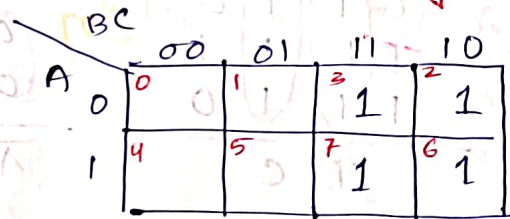 BC
00 01 11 10
A
0 0 1 3 1 2 1
1 4 5 7 1 6 1